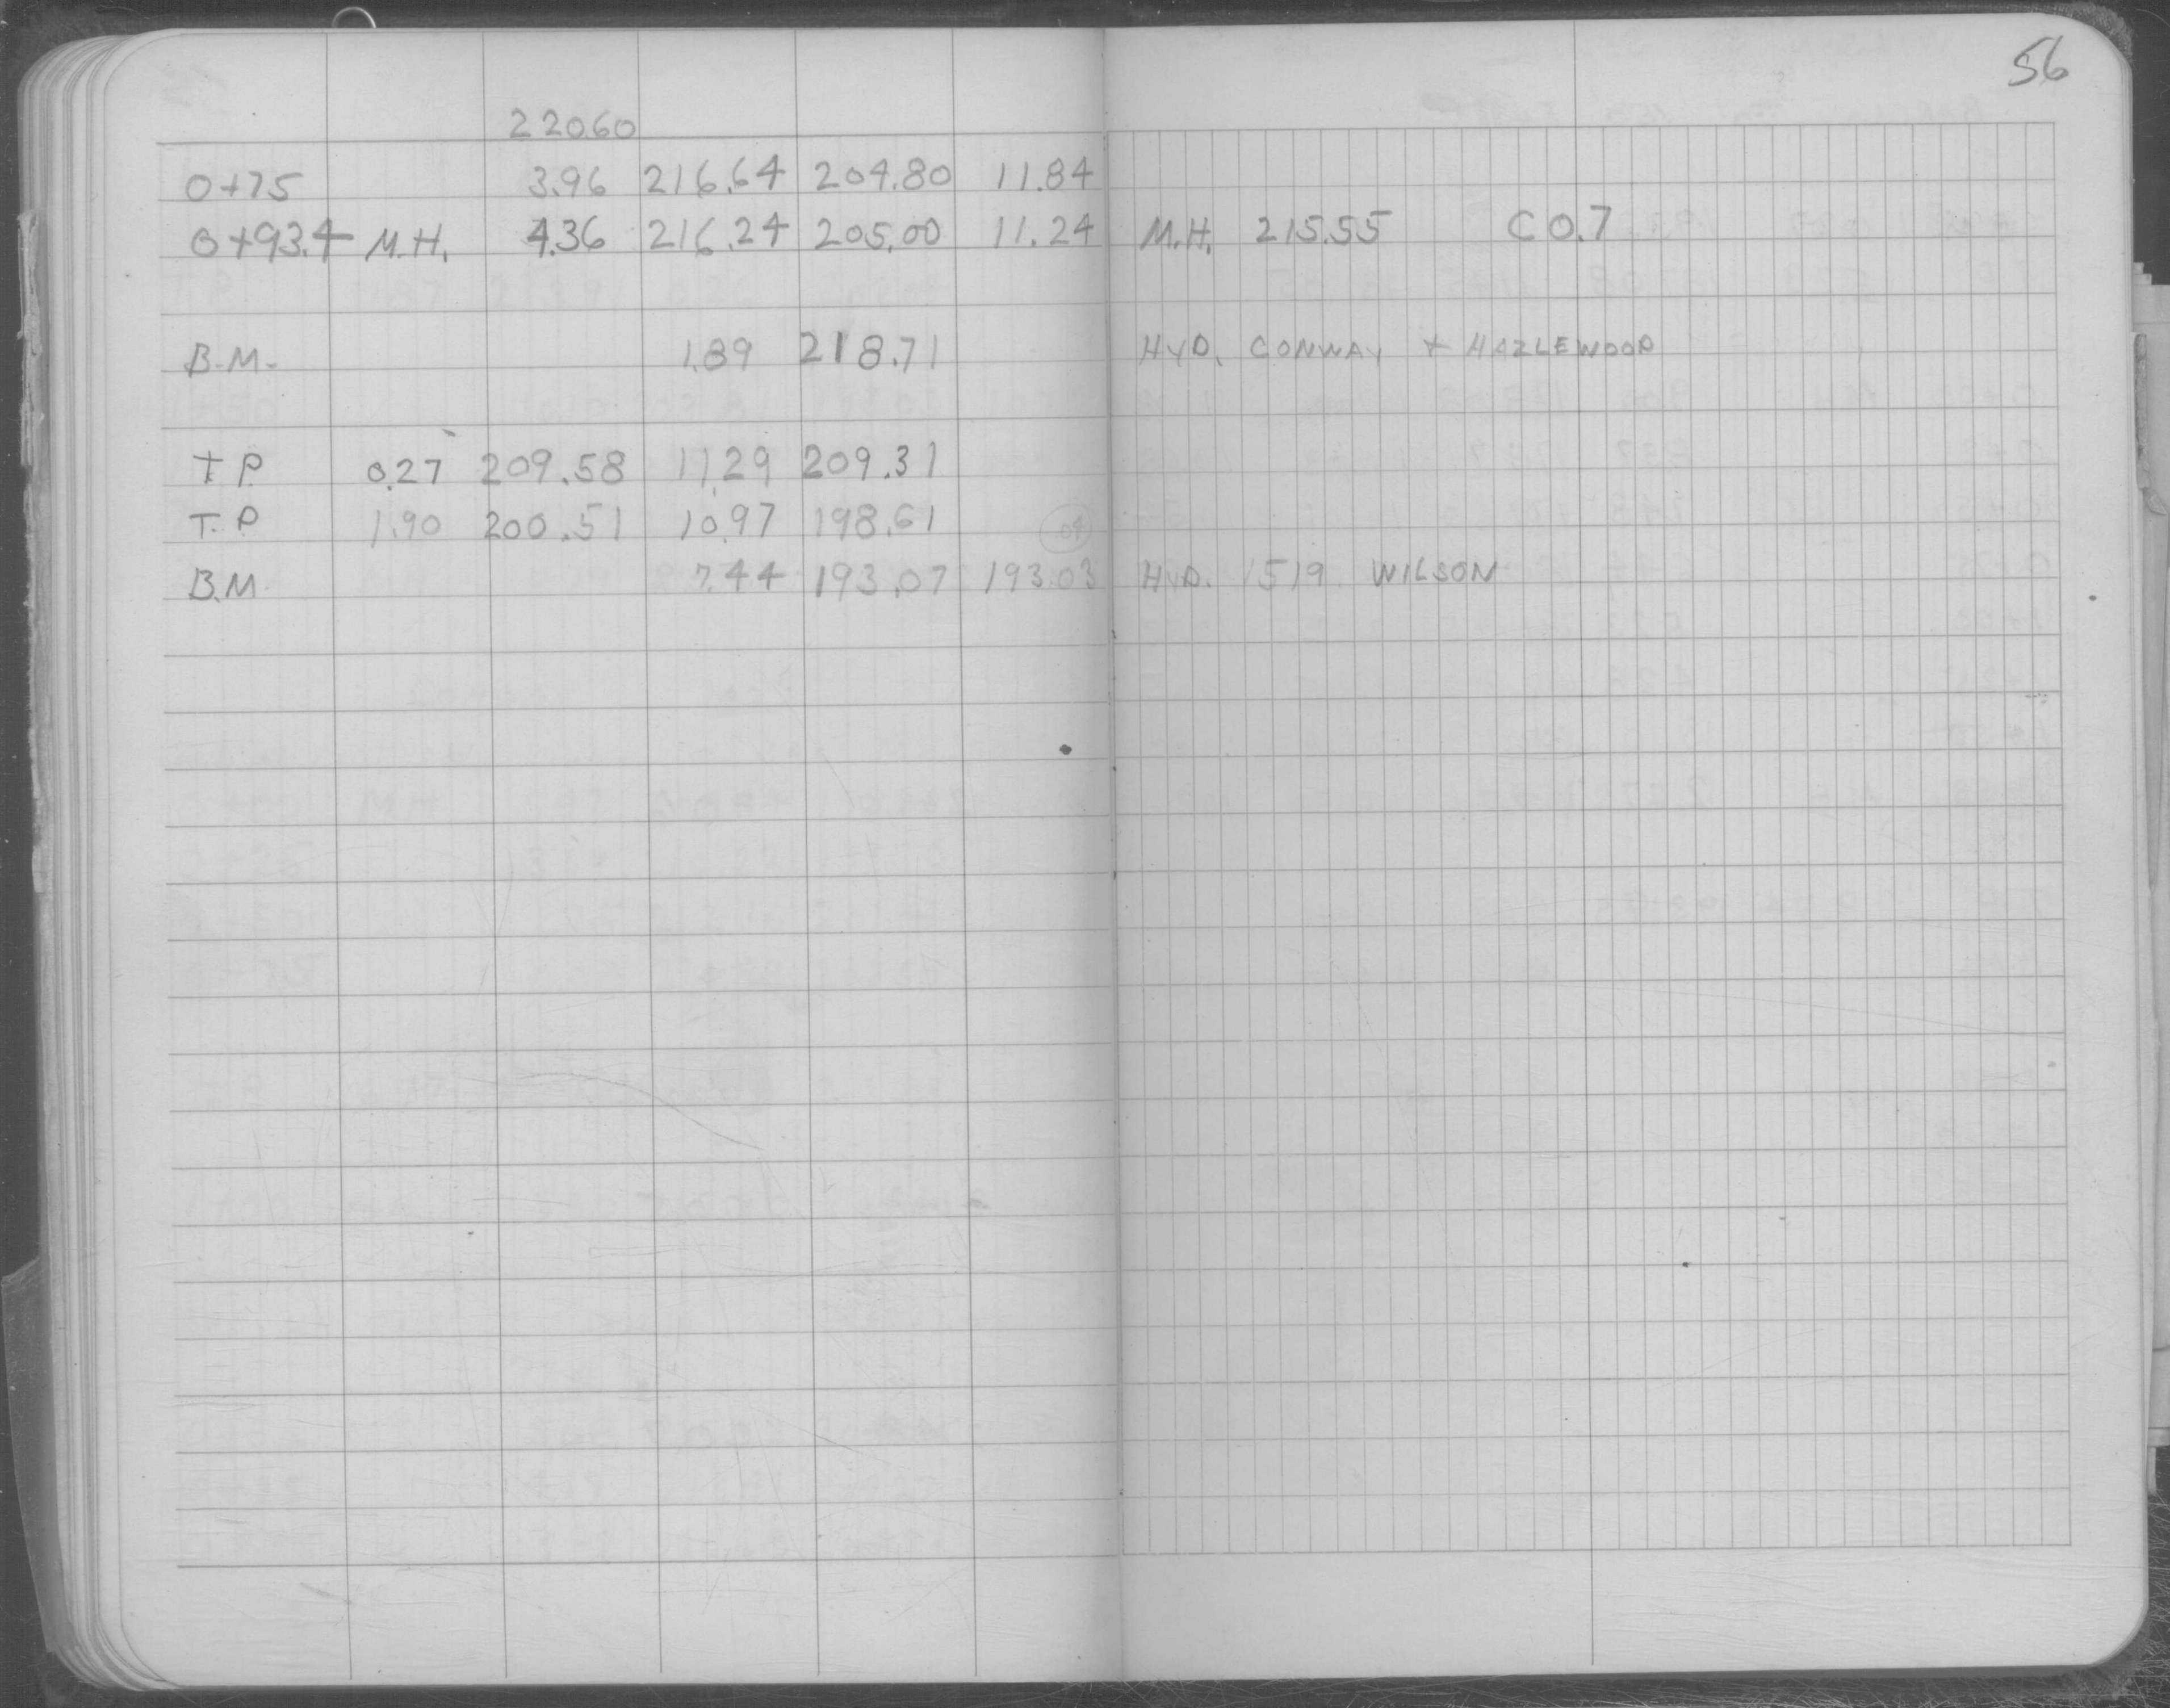 56
22060
0+75 3.96 216.64 204.80 11.84
0+93.4 M.H. 4.36 216.24 205.00 11.24 M.H. 215.55 C 0.7
B.M. 1.89 218.71 HYD. CONWAY + HAZLEWOOD
T.P. 0.27 209.58 11.29 209.31
T.P. 1.90 200.51 10.97 198.61 .04
B.M. 7.44 193.07 193.03 HYD. 1519 WILSON